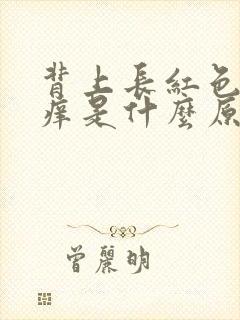 背上長紅色
痒是什麼原
曾麗明